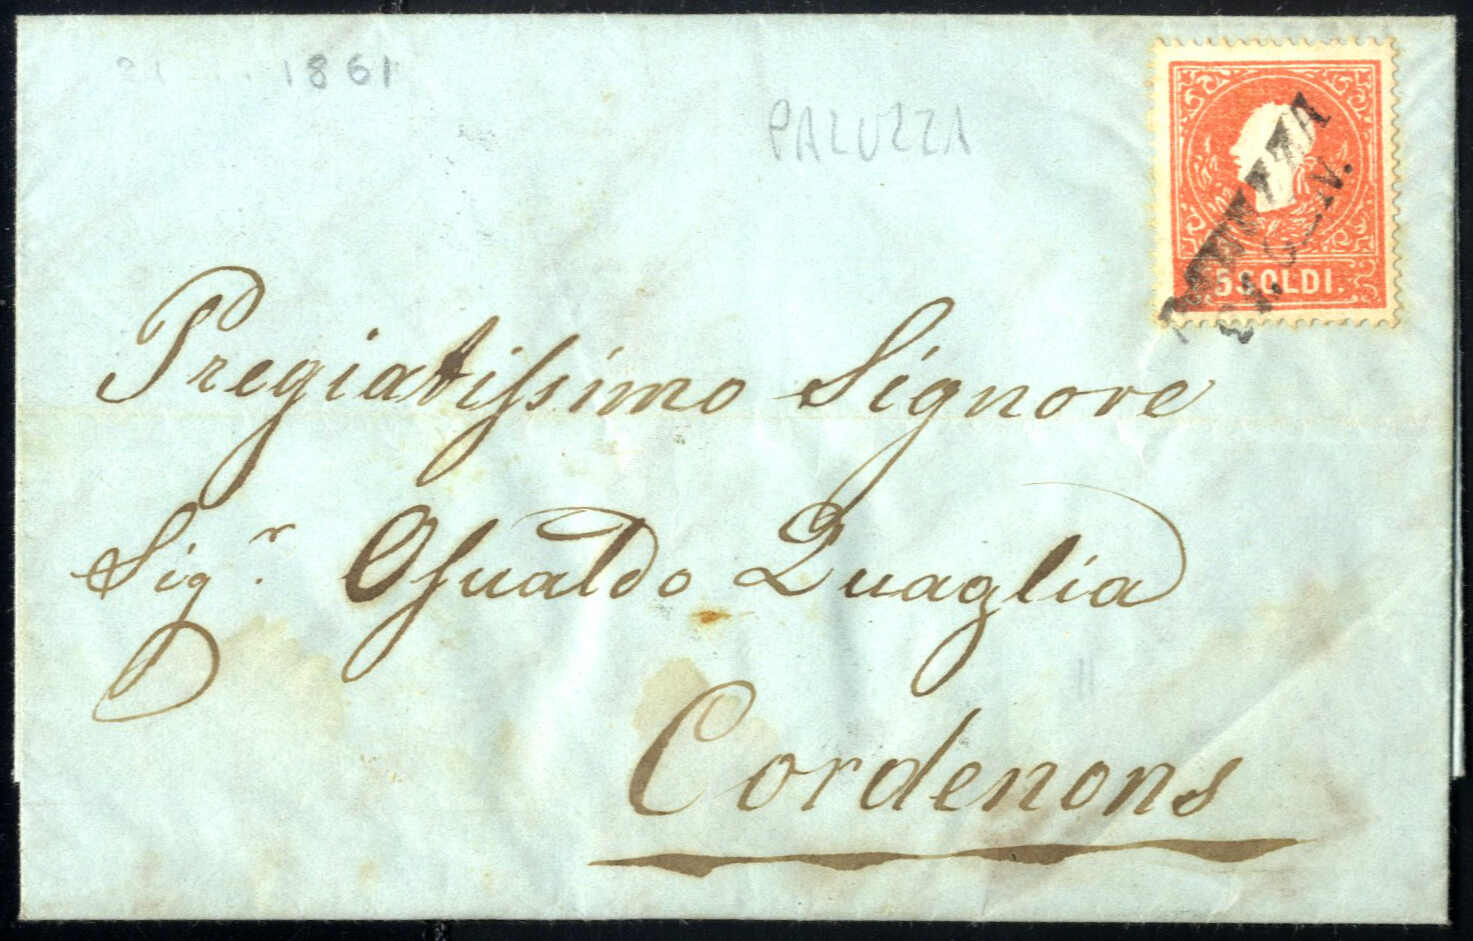 1861
PALUZZA
5 SOLDI.
Pregiatissimo Signore
Sig.r Osualdo Quaglia
Cordenons